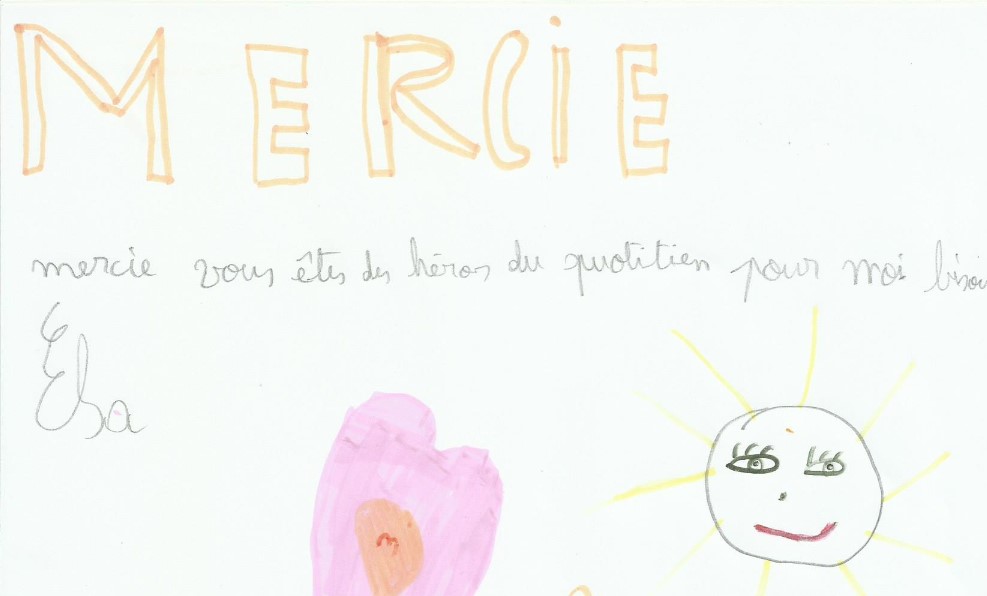 MERCiE
mercie vous êtes des héros du quotitien pour moi bisou
Elsa